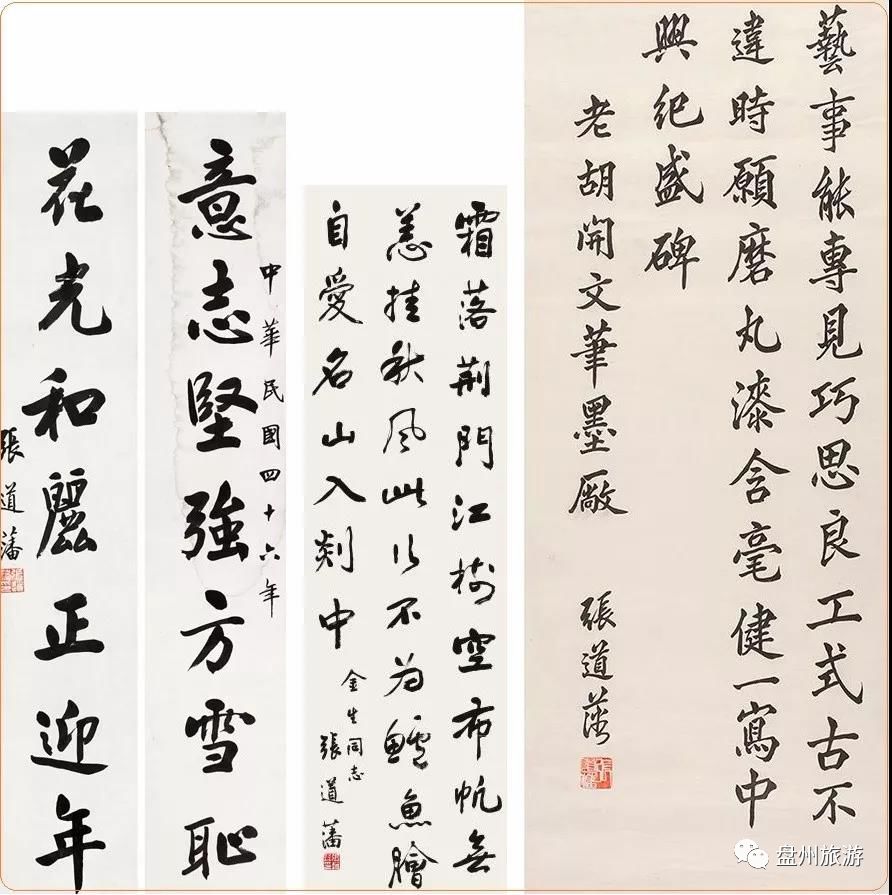 藝事能專見巧思良工式古不
違時願磨丸漆含毫健一寫中
興紀盛碑
老胡開文筆墨廠
張道藩
霜落荊門江樹空布帆無
恙挂秋風此行不為鱸魚膾
自愛名山入剡中
金生同志
張道藩
中華民國四十六年
意志堅強方雪恥
花光和麗正迎年
張道藩
盘州旅游